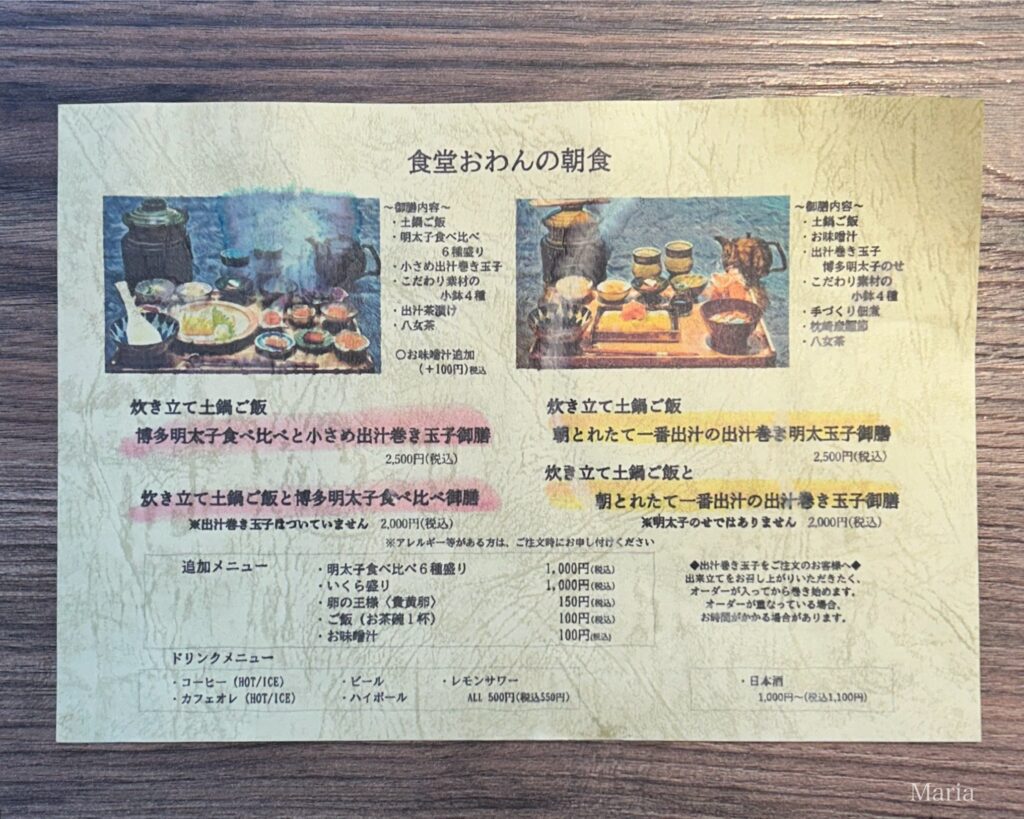 食堂おわんの朝食
〜御膳内容〜
・土鍋ご飯
・明太子食べ比べ
６種盛り
・小さめ出汁巻き玉子
・こだわり素材の
小鉢４種
・出汁茶漬け
・八女茶
○お味噌汁追加
(＋100円)税込
〜御膳内容〜
・土鍋ご飯
・お味噌汁
・出汁巻き玉子
博多明太子のせ
・こだわり素材の
小鉢４種
・手づくり佃煮
・枕崎産鰹節
・八女茶
炊き立て土鍋ご飯
博多明太子食べ比べと小さめ出汁巻き玉子御膳
2,500円(税込)
炊き立て土鍋ご飯と博多明太子食べ比べ御膳
※出汁巻き玉子はついていません 2,000円(税込)
炊き立て土鍋ご飯
朝とれたて一番出汁の出汁巻き明太玉子御膳
2,500円(税込)
炊き立て土鍋ご飯と
朝とれたて一番出汁の出汁巻き玉子御膳
※明太子のせではありません 2,000円(税込)
※アレルギー等がある方は、ご注文時にお申し付けください
追加メニュー
・明太子食べ比べ６種盛り 1,000円(税込)
・いくら盛り 1,000円(税込)
・卵の王様〈貴黄卵〉 150円(税込)
・ご飯（お茶碗１杯） 100円(税込)
・お味噌汁 100円(税込)
◆出汁巻き玉子をご注文のお客様へ◆
出来立てをお召し上がりいただきたく、
オーダーが入ってから巻き始めます。
オーダーが重なっている場合、
お時間がかかる場合があります。
ドリンクメニュー
・コーヒー (HOT/ICE) ・ビール ・レモンサワー ・日本酒
・カフェオレ (HOT/ICE) ・ハイボール ALL 500円(税込550円) 1,000円〜(税込1,100円)
Maria